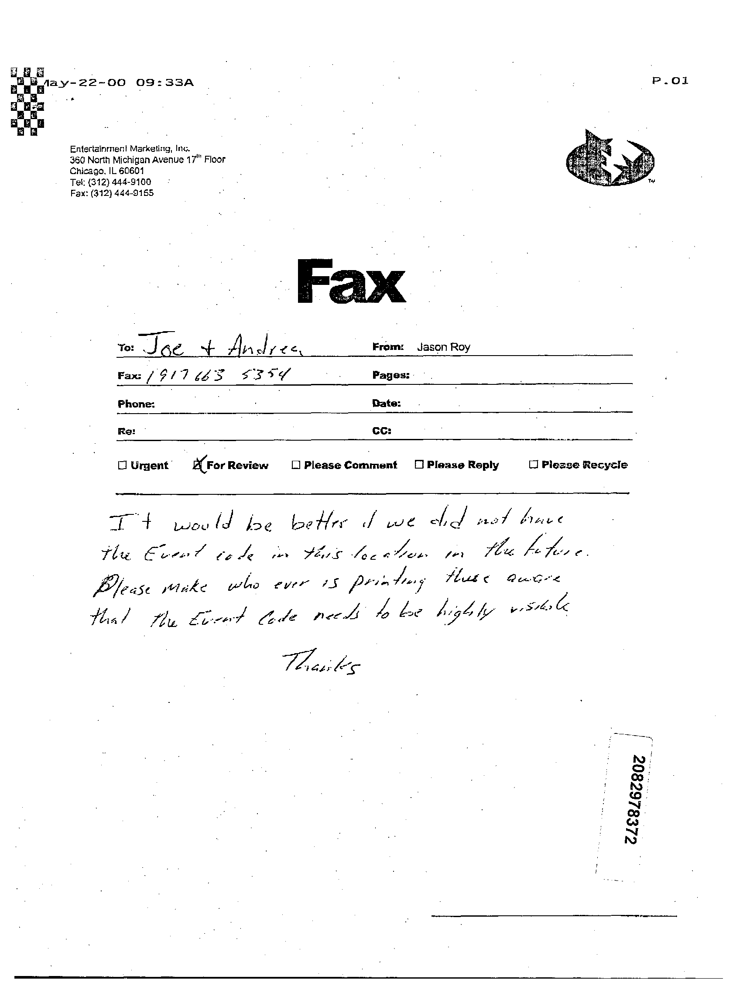 May-22-00 09:33A P.01
Entertainment Marketing, Inc.
360 North Michigan Avenue 17th Floor
Chicago, IL 60601
Tel: (312) 444-9100
Fax: (312) 444-9155
TM
Fax
To: Joe + Andrea From: Jason Roy
Fax: 1917 663 5354 Pages:
Phone: Date:
Re: CC:
☐ Urgent ☒ For Review ☐ Please Comment ☐ Please Reply ☐ Please Recycle
It would be better if we did not have
the Event code in this location in the future.
Please make who ever is printing these aware
that the Event Code needs to be highly visible
Thanks
2082978372